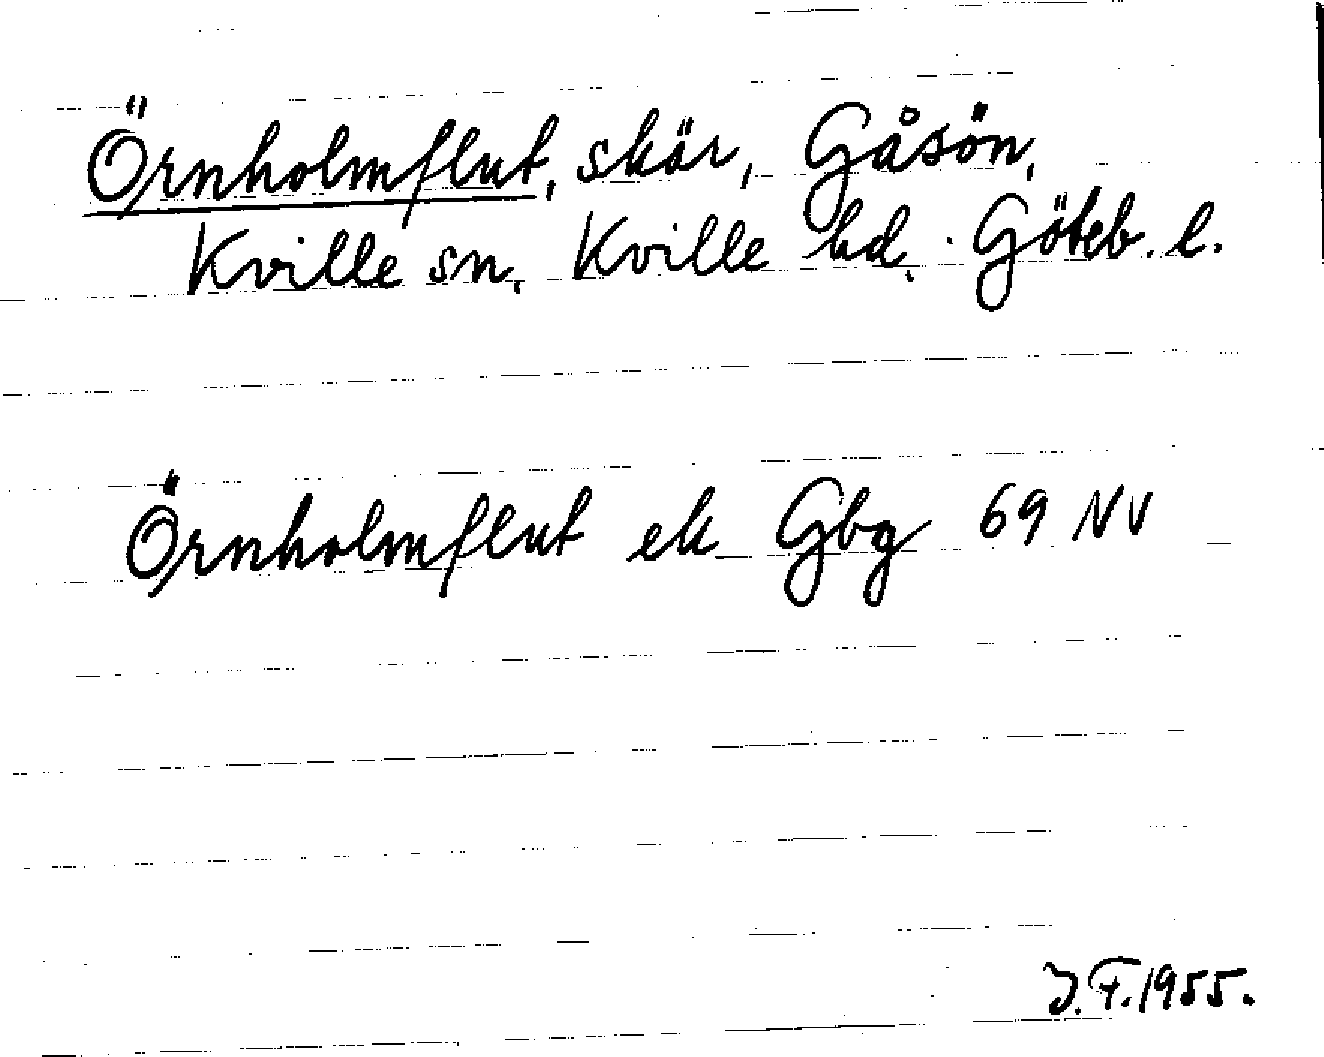 Örnholmflut, skär, Gåsön,
Kville sn, Kville hd. Göteb. l.
Örnholmflut ek Gbg 69 NV
J.F.1955.